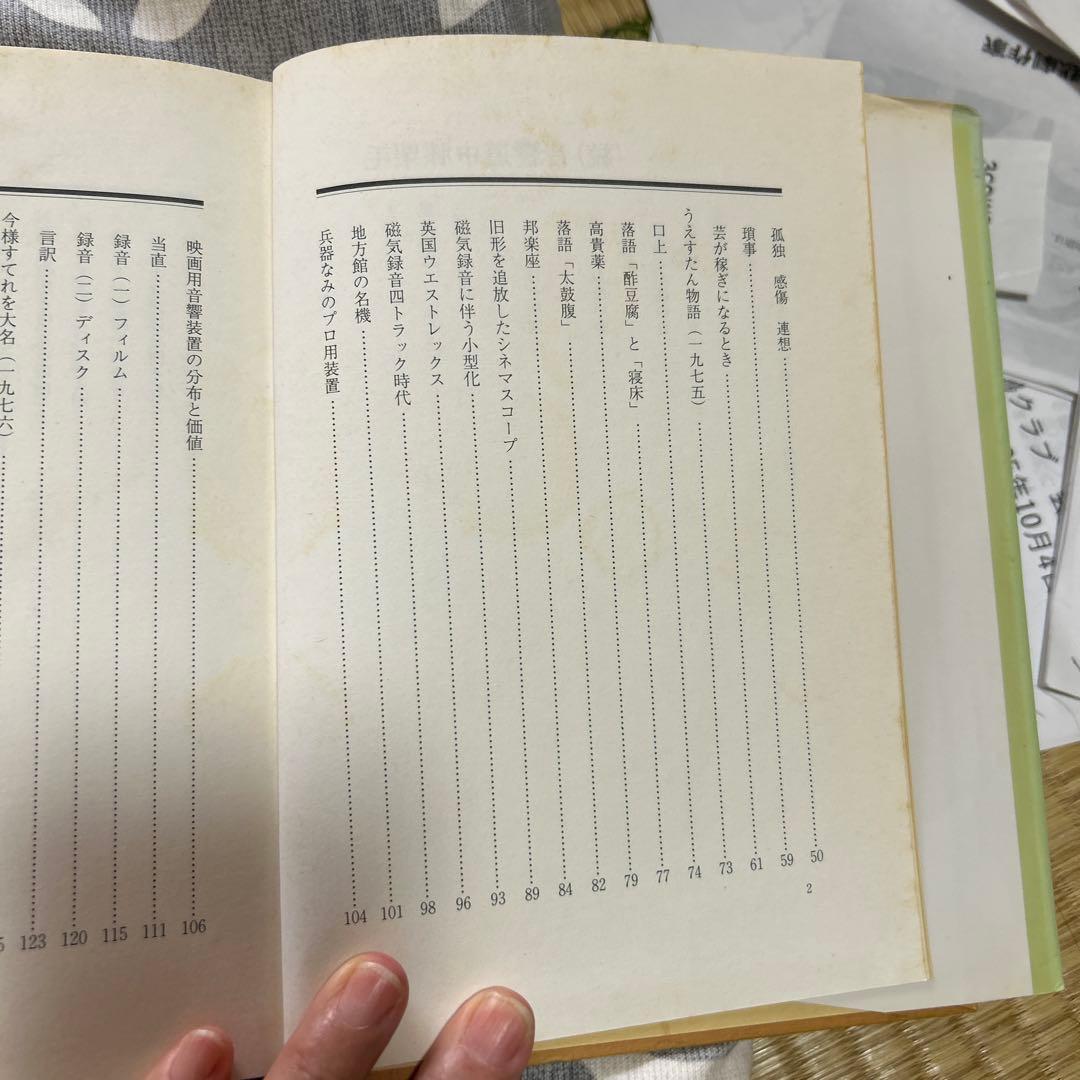 孤独　感傷　連想 50
瑣事 59
芸が稼ぎになるとき 61
うえすたん物語（一九七五） 73
口上 74
落語「酢豆腐」と「寝床」 77
高貴薬 79
落語「太鼓腹」 82
邦楽座 84
旧形を追放したシネマスコープ 89
磁気録音に伴う小型化 93
英国ウエストレックス 96
磁気録音四トラック時代 98
地方館の名機 101
兵器なみのプロ用装置 104
2
映画用音響装置の分布と価値 106
当直 111
録音（一）フィルム 115
録音（二）ディスク 120
言訳 123
今様すてれを大名（一九七六）
クラブ
年10月4